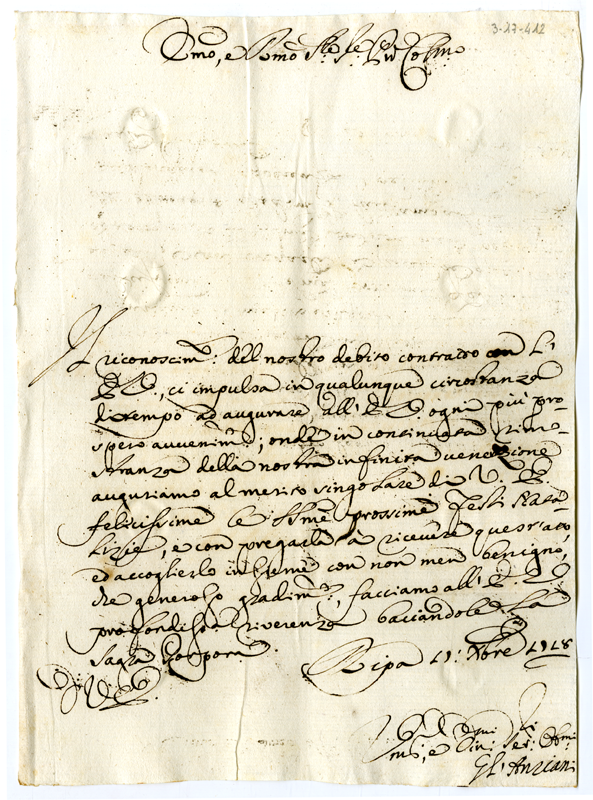 3-27-412
Emo, e Rmo Sig.re Sig.re P̄ron Col̄mo
Il riconoscim: del nostro debito contratto con L'
E. V., ci impulsa in qualunque circostanza
di tempo ad augurare all' E. V. ogni più pro-
spero avvenim:; onde in continuata rimo-
stranza della nostra infinita venerazione
auguriamo al merito singolare di V. E.
felicissime le SSme prossime Feste Nata-
lizie, e con pregarla a ricevere quest'atto,
ed accoglierlo insieme con non men benigno,
che generoso gradim:, facciamo all' E. V.
profondiss: riverenza baciandole la
Sagra Porpora.
Di V. E.
Ripa 17: Xbre 1718
Umi, e Ser: Obmi
Gl' Anziani